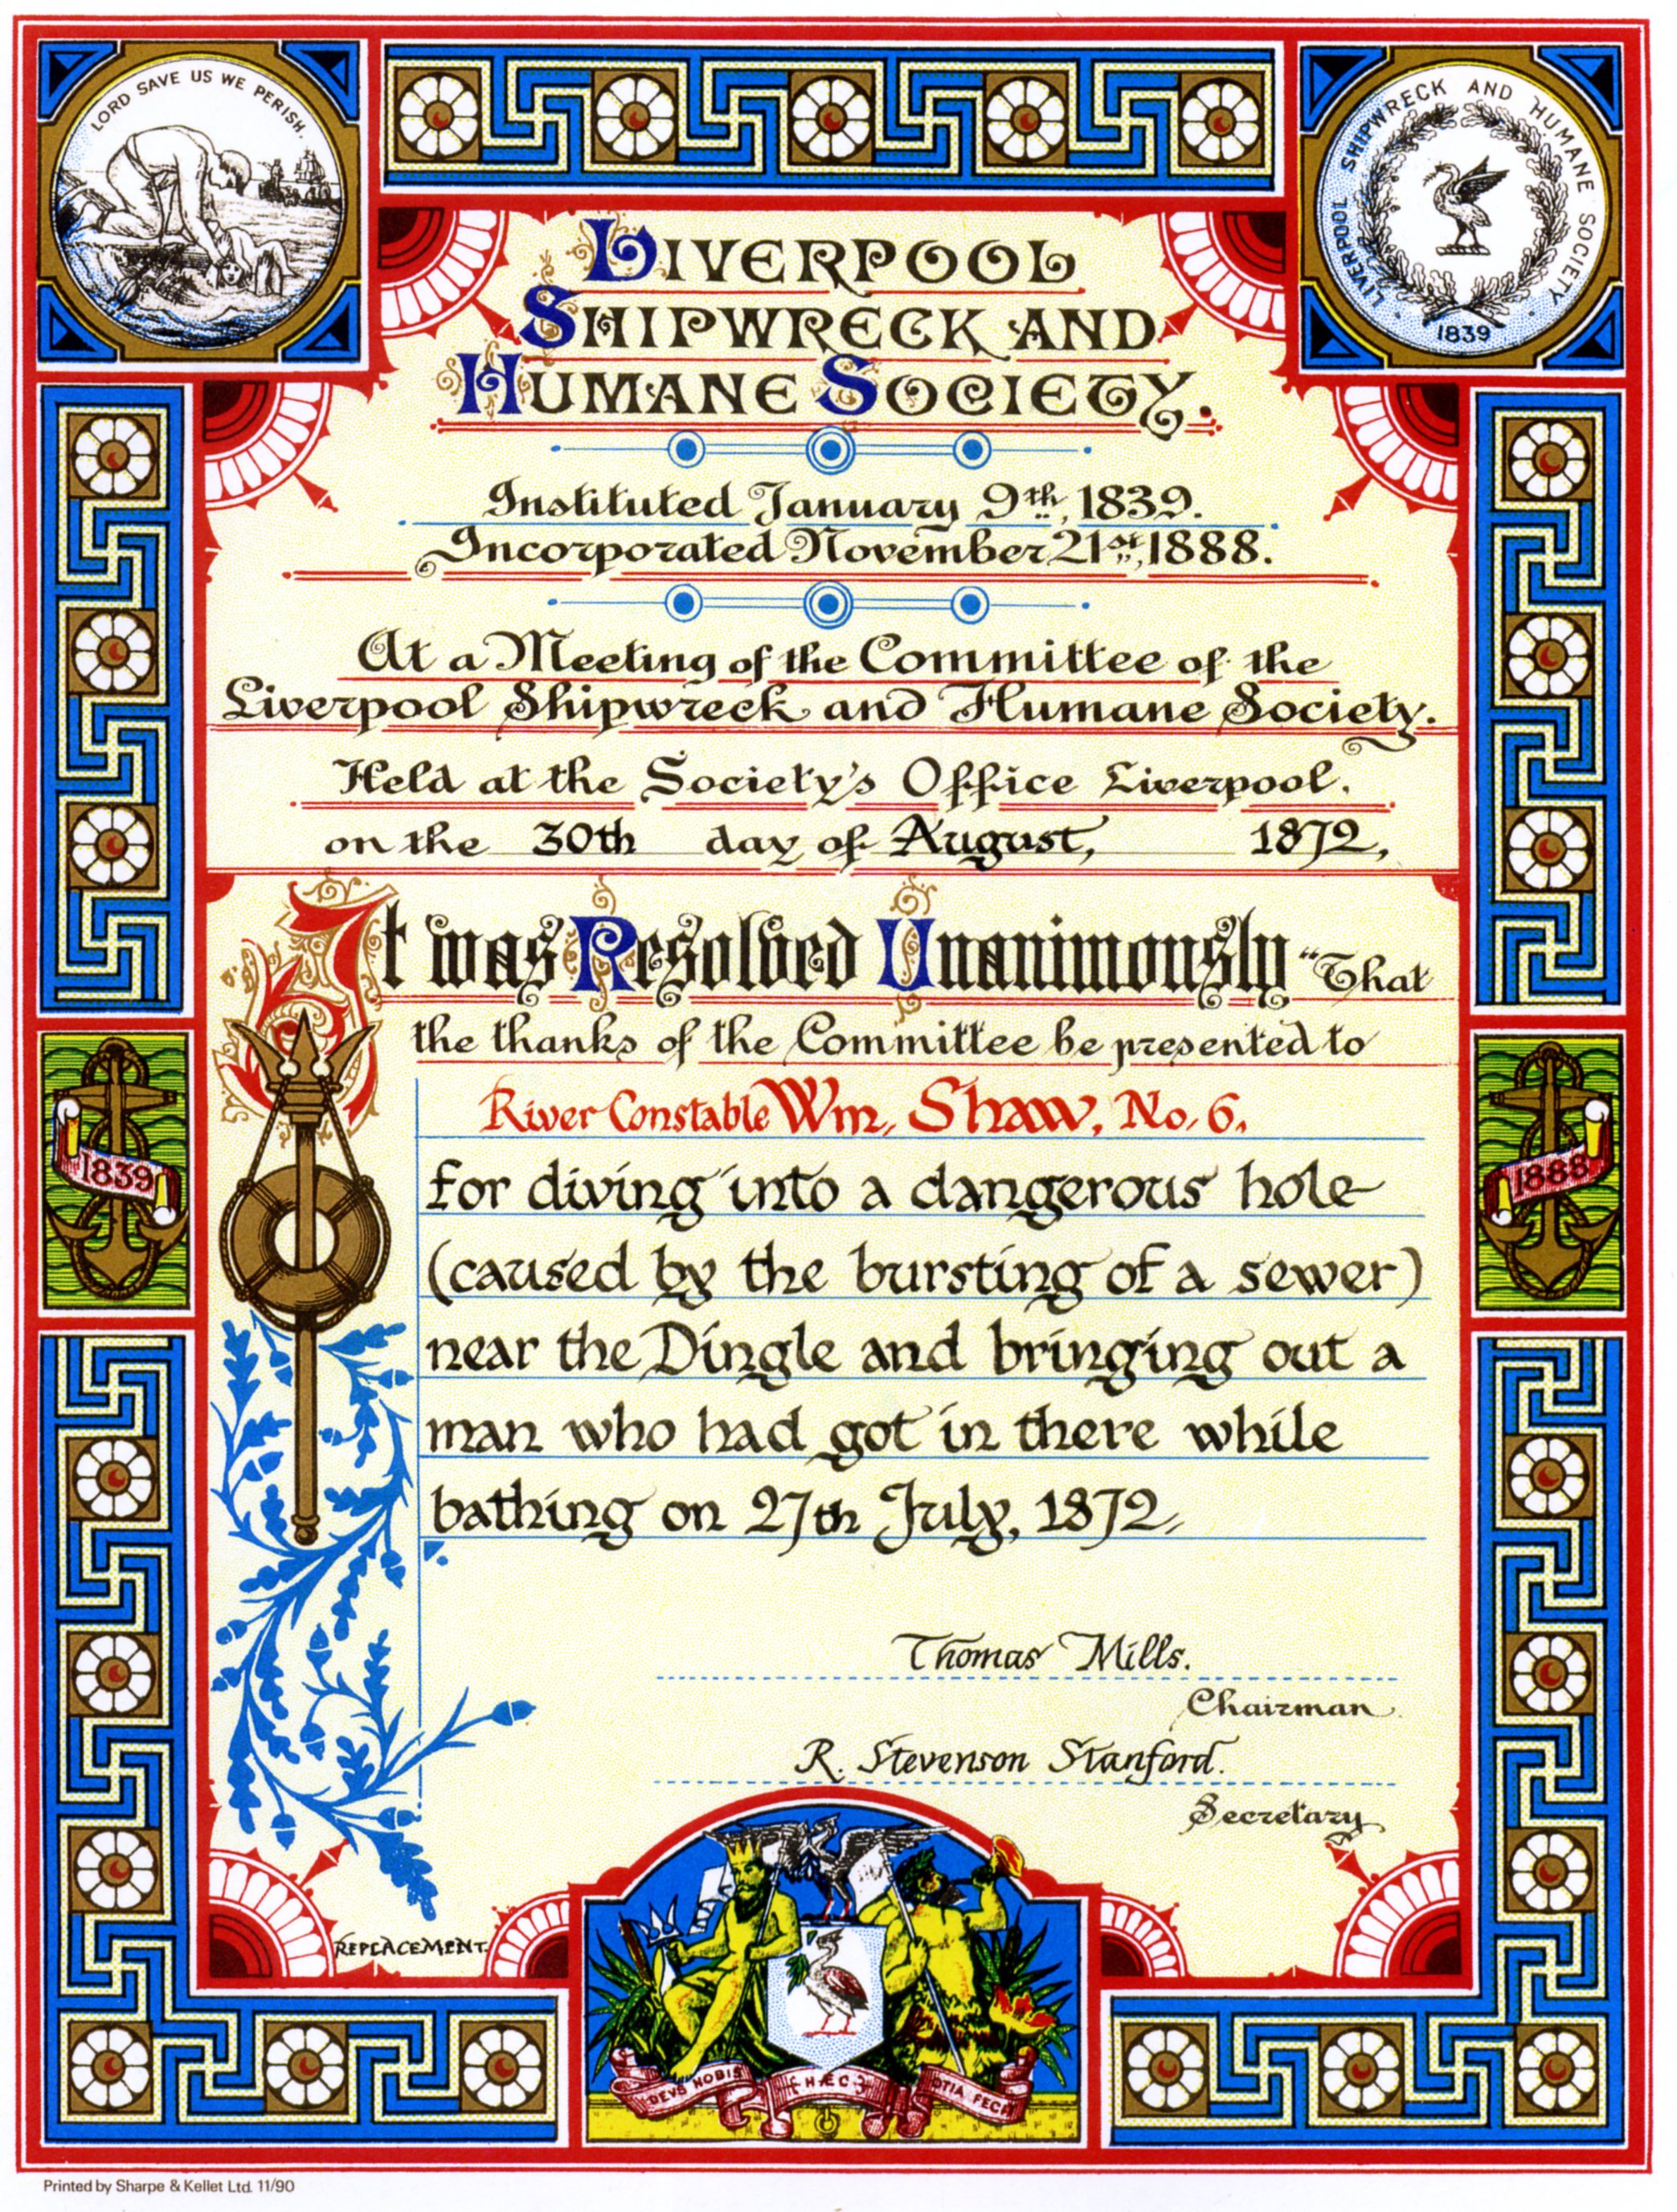 LORD SAVE US WE PERISH.
LIVERPOOL SHIPWRECK AND HUMANE SOCIETY
1839
LIVERPOOL
SHIPWRECK AND
HUMANE SOCIETY.
Instituted January 9th, 1839.
Incorporated November 21st, 1888.
At a Meeting of the Committee of the
Liverpool Shipwreck and Humane Society.
Held at the Society's Office Liverpool.
on the 30th day of August, 1872,
It was Resolved Unanimously "That
the thanks of the Committee be presented to
River Constable Wm, Shaw, No, 6,
for diving into a dangerous hole
(caused by the bursting of a sewer)
near the Dingle and bringing out a
man who had got in there while
bathing on 27th July, 1872,
1839
1888
Thomas Mills.
Chairman
R. Stevenson Stanford.
Secretary
REPLACEMENT.
DEVS NOBIS HÆC OTIA FECIT
Printed by Sharpe & Kellet Ltd. 11/90